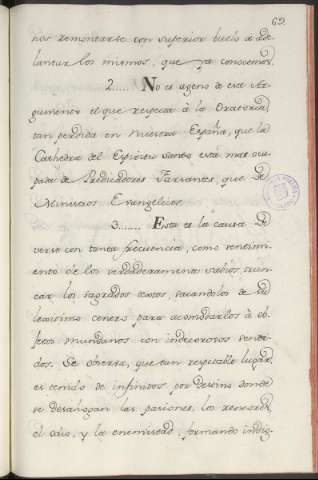 69.
nos remontarse con superior buelo à ade
lantar los mismos, que ya conocemos.
2...... No es ageno de este Ar-
gumento el que respecta à la Oratoria,
tan perdida en nuestra España, que la
Cathedra del Espiritu Santo està mas ocu
pada de Predicadores Farsantes, que de
Ministros Evangelicos.
3...... Esta es la causa de
verse con tanta frecuencia, como sentimi-
ento de los verdaderamente sabios, trun-
car los sagrados textos, sacandolos de su
centro para acomodarlos à ob-
jetos mundanos con indecorosos senti-
dos. Se observa, que tan respetable lugar,
es tenido de infinitos por Destino donde
se desahogan las pasiones, los rencores,
el odio, y la enemistad, formando indig-